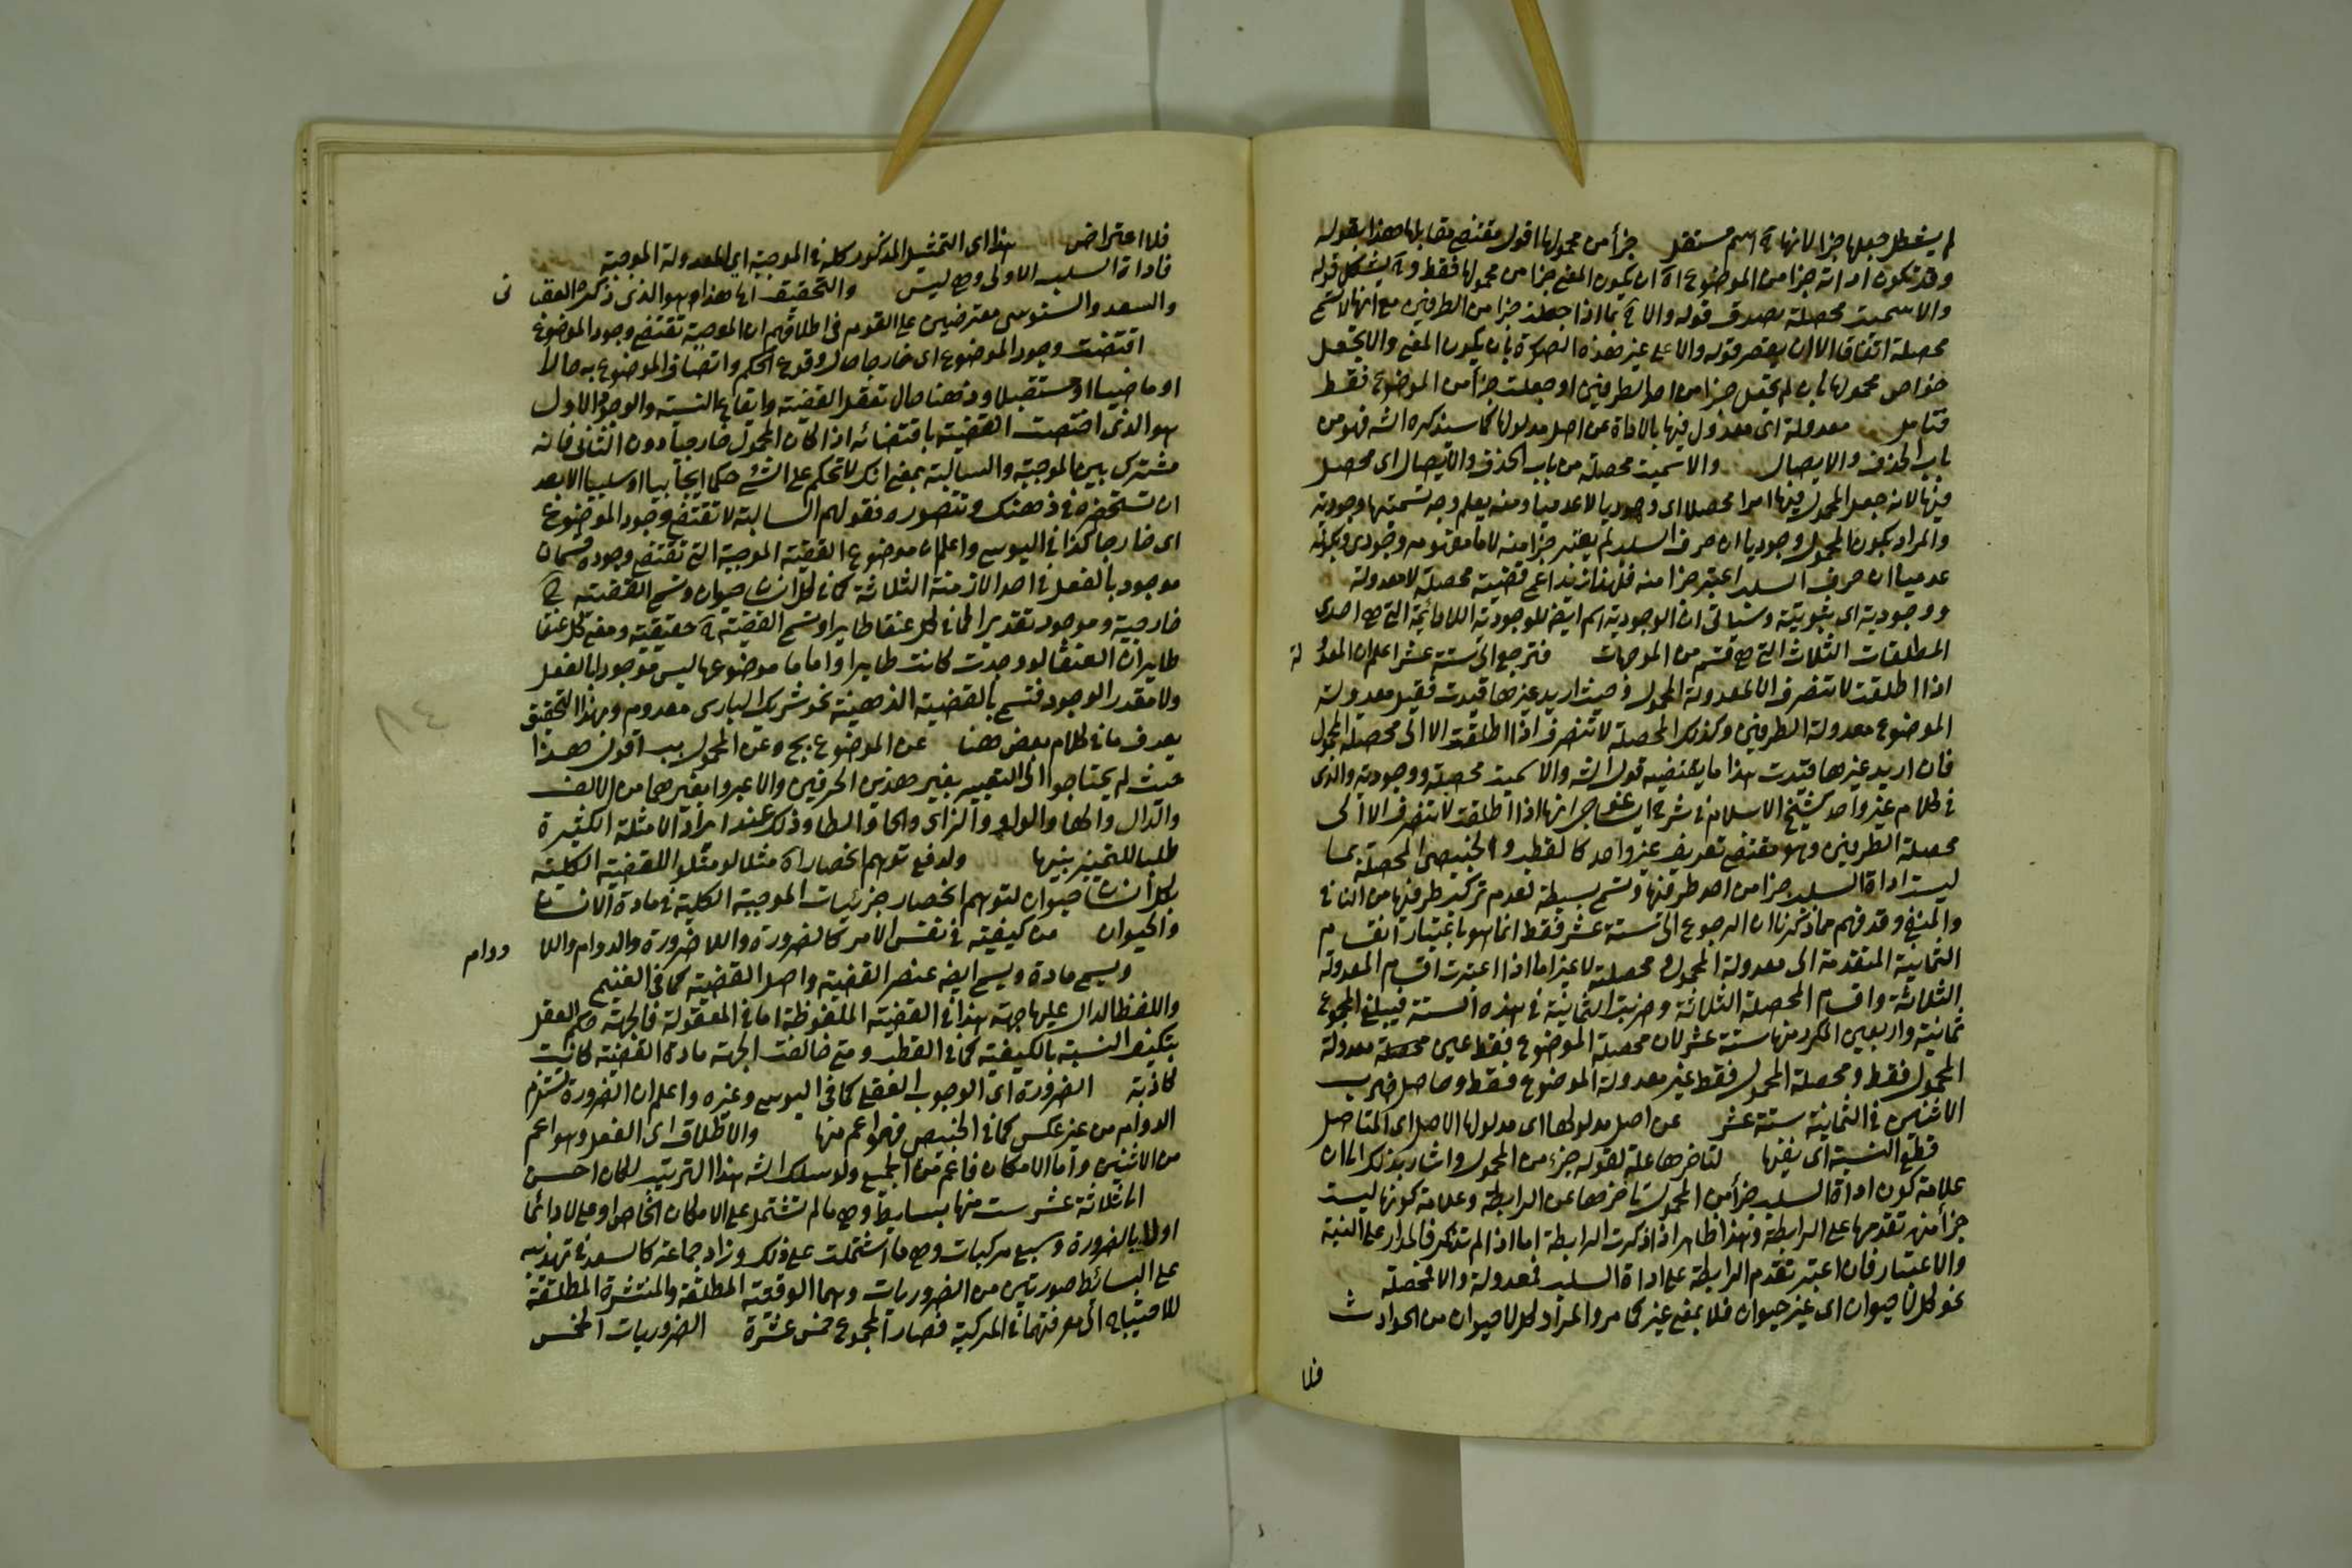 لم يشغل جعلها جزا لانها ح اسم مستقل جزأ من محمولها اقول مقتضى مقابلها هذا بقوله
وقد تكون اداته جزا من الموضوع اه ان يكون المعنى جزا من محمولها فقط وح يشكل قوله
والا سميت محصلة بصدق قوله والا ح بما اذا جعلت جزا من الطرفين مع انها لا تسمى
محصلة اتفاقا الا ان يقصر قوله والا على غير هذه الصورة بان يكون المعنى والا تجعل
جزا من محمولها بان لم تجعل جزا من احد الطرفين او جعلت جزأ من الموضوع فقط
فتامل معدولة اى معدول فيها بالاداة عن اصل مدلولها كما سيذكره الش فهو من
باب الحذف والايصال والا سميت محصلة من باب الحذف والايصال اى محصل
فيها لانه جعل المحمول فيها امرا محصلا اى وجوديا لا عدميا ومنه يعلم وجه تسميتها وجودية
والمراد بكون المحمول وجوديا ان حرف السلب لم يعتبر جزا منه لا ما مفهومه وجودى وبكونه
عدميا ان حرف السلب اعتبر جزا منه فلهذا زيد اعمى قضية محصلة لا معدولة
ووجودية اى ثبوتية وسياتى ان الوجودية اسم ايضا للوجودية اللادائمة التى هى احدى
المطلقات الثلاث التى هى قسم من الموجهات فترجع الى ستة عشر اعلم ان المعدو لة
اذا اطلقت لا تنصرف الا لمعدولة المحمول وحيث اريد غيرها قيدت فقيل معدولة
الموضوع معدولة الطرفين وكذلك المحصلة لا تنصرف اذا اطلقت الا الى محصلة المحمول
فان اريد غيرها قيدت هذا ما يقتضيه قول الش والا سميت محصلة ووجودية والذى
فى كلام غير واحد كشيخ الاسلام فى شرح ايساغوجى انها اذا اطلقت لا تنصرف الا الى
محصلة الطرفين وهو مقتضى تعريف غير واحد كالقطب والخبيصى المحصلة بما
ليست اداة السلب جزا من احد طرفيها وتسمى بسيطة لعدم تركب طرفيها من النافى
والمنفى وقد فهم مما ذكرنا ان الرجوع الى ستة عشر فقط انما هو باعتبار انقسام
الثمانية المتقدمة الى معدولة المحمول ومحصلة لا غير اما اذا اعتبرت اقسام المعدولة
الثلاثة واقسام المحصلة الثلاثة وضربت الثمانية فى هذه الستة فيبلغ المجموع
ثمانية واربعين المكرر منها ستة عشر لان محصلة الموضوع فقط عين معدولة
المحمول فقط ومحصلة المحمول فقط غير معدولة الموضوع فقط وحاصل ضرب
الاثنين فى الثمانية ستة عشر عن اصل مدلولها اى مدلولها الاصلى اى المتاصل
قطع النسبة اى نفيها لتاخرها علة لقوله جزء من المحمول واشار بذلك الى ان
علامة كون اداة السلب جزأ من المحمول تاخرها عن الرابطة وعلامة كونها ليست
جزأ منه تقدمها على الرابطة وهذا ظاهر اذا ذكرت الرابطة اما اذا لم تذكر فالمدار على النية
والاعتبار فان اعتبر تقدم الرابطة على اداة السلب فمعدولة والا فمحصلة
نحو كل لا حيوان اى غير حيوان فلا بمعنى غير كما مر والمراد كل لا حيوان من الحوادث
فلا
فلا اعتراض هذا اى التمثيل المذكور كله فى الموجبة اى المعدولة الموجبة
فاداة السلب الاولى وهى ليس والتحقيق اه هذا هو الذى ذكره العقبا نى
والسعد والسنوسى معترضين على القوم فى اطلاقهم ان الموجبة تقتضى وجود الموضوع
اقتضت وجود الموضوع اى خارجا حال وقوع الحكم واتصاف الموضوع به حالا
او ماضيا او مستقبلا وذهنا حال تعقل القضية وايقاع النسبة والوجود الاول
هو الذى اختصت القضية باقتضائه اذا كان المحمول خارجيا دون الثانى فانه
مشترك بين الموجبة والسالبة بمعنى انك لا تحكم على الشئ حكما ايجابيا او سلبيا الا بعد
ان تستحضره فى ذهنك وتتصوره فقولهم السالبة لا تقتضى وجود الموضوع
اى خارجا كذا فى اليوسى واعلم ان موضوع القضية الموجبة التى تقتضى وجوده قسمان
موجود بالفعل فى احد الازمنة الثلاثة كما فى كل انسان حيوان وتسمى القضية ح
خارجية وموجود تقديرا كما فى كل عنقا طاير وتسمى القضية ح حقيقية ومعنى كل عنقا
طاير ان العنقا لو وجدت كانت طايرا واما ما موضوعها ليس موجودا بالفعل
ولا مقدر الوجود فتسمى بالقضية الذهنية نحو شريك البارى معدوم وبهذا التحقيق
يعرف ما فى كلام بعض هنا عن الموضوع بج وعن المحمول بب اقول هذا
حيث لم يحتاجوا الى التعبير بغير هذين الحرفين والا عبروا بغيرهما من الالف
والدال والها والواو والزاى والحا والطا وذلك عند ايراد الامثلة الكثيرة
طلبا للتمييز بينها ولدفع توهم انحصار اه مثلا لو مثلوا للقضية الكلية
بكل انسان حيوان لتوهم انحصار جزئيات الموجبة الكلية فى مادة الانسان
والحيوان من كيفية فى نفس الامر كالضرورة واللاضرورة والدوام واللا دوام
ويسمى مادة ويسمى ايضا عنصر القضية واصل القضية كما فى الغنيمى
واللفظ الدال عليها جهة هذا فى القضية الملفوظة اما فى المعقولة فالجهة حكم العقل
بتكيف النسبة بالكيفية كما فى القطب ومتى خالفت الجهة مادة القضية كانت
كاذبة الضرورة اى الوجوب العقلى كما فى اليوسى وغيره واعلم ان الضرورة تستلزم
الدوام من غير عكس كما فى الخبيصى فهو اعم منها والاطلاق اى الفعل وهو اعم
من الاثنين واما الامكان فاعم من الجميع ولو سلك الش هذا الترتيب لكان احسن
الى ثلاثة عشر ست منها بسايط وهى ما لم تشتمل على الامكان الخاص او على لا دائما
او لا بالضرورة وسبع مركبات وهى ما اشتملت على ذلك وزاد جماعة كالسعد فى تهذيبه
على البسائط صورتين من الضروريات وهما الوقتية المطلقة والمنتشرة المطلقة
للاحتياج الى معرفتهما فى المركبة فصار المجموع خمس عشرة الضروريات الخمس